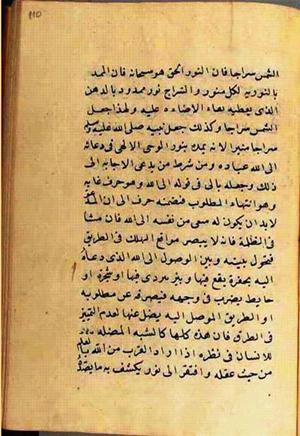 110
الشمس سراجا فان النور الحق هو سبحانه فان الممد
بالنوريه لكل منور والسراج نور ممدود بالدهن
الذى يعطيه بقاء الاضاءه عليه ولهذا جعل
الشمس سراجا وكذلك جعل نبيه صلى الله عليه وسلم
سراجا منيرا لانه يمده بنور الوحى الالهى فى دعائه
الى الله عباده ومن شرط من يدعى الاجابه الى
ذلك وجعله بالى فى قوله الى الله وهو حرف غايه
وهو انتهاء المطلوب فضمنه حرف الى ان المدعو
لابد ان يكون له سعى من نفسه الى الله فان مشا
فى الظلمة فانه لا يبصر مواقع المهلك فى الطريق
فتحول بينه وبين الوصول الى الله الذى دعاه
اليه بحفرة يقع فيها و بئر يتردى فيها او شجرة او
حايط يضرب فى وجهه فيصرفه عن مطلوبه
او الطريق الموصل اليه يضل عنها لعدم التمييز
فى الطرق فان هذه كلها كالشبه المضله
للانسان فى نظره اذا اراد القرب من الله بالعلم
من حيث عقله وافتقر الى نور يكشف به ما يصده